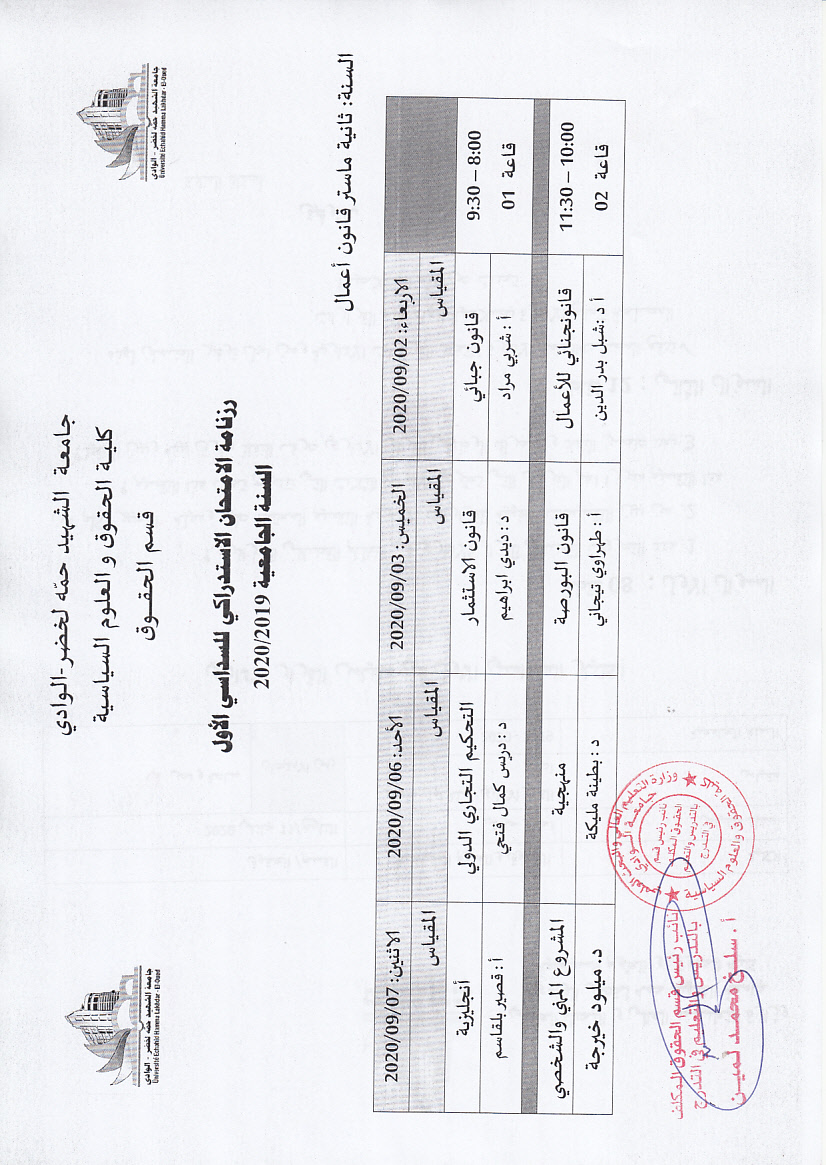 جامعة الشهيد حمّه لخضر-الوادي
كلية الحقوق و العلوم السياسية
قسم الحقــوق
جامعة الشهيد حمه لخضر - الوادي
Université Echahid Hamma Lakhdar - El-Oued
جامعة الشهيد حمه لخضر - الوادي
Université Echahid Hamma Lakhdar - El-Oued
رزنامة الامتحان الاستدراكي للسداسي الأول
السنة الجامعية 2020/2019
السنة: ثانية ماستر قانون أعمال
الاربعاء: 2020/09/02 الخميس: 2020/09/03 الأحد: 2020/09/06 الاثنين: 2020/09/07
المقياس المقياس المقياس المقياس
8:00 – 9:30 قانون جبائي قانون الاستثمار التحكيم التجاري الدولي أنجليزية
قاعة 01 أ : شربي مراد د : ديدي ابراهيم د : دريس كمال فتحي أ : قصير بلقاسم
10:00 – 11:30 قانونجنائي للأعمال قانون البورصة منهجية المشروع المهني والشخصي
قاعة 02 أ د :شبل بدر الدين أ : طهراوي تيجاني د : بطينة مليكة د. ميلود خيرجة
وزارة التعليم العالي والبحث العلمي
جامعة الوادي
كلية الحقوق والعلوم السياسية
نائب رئيس قسم
الحقوق المكلف
بالتدريس والتعليم
في التدرج
نائب رئيس قسم الحقوق المكلف
بالتدريس والتعليم في التدرج
أ. سلخ محمد لمين